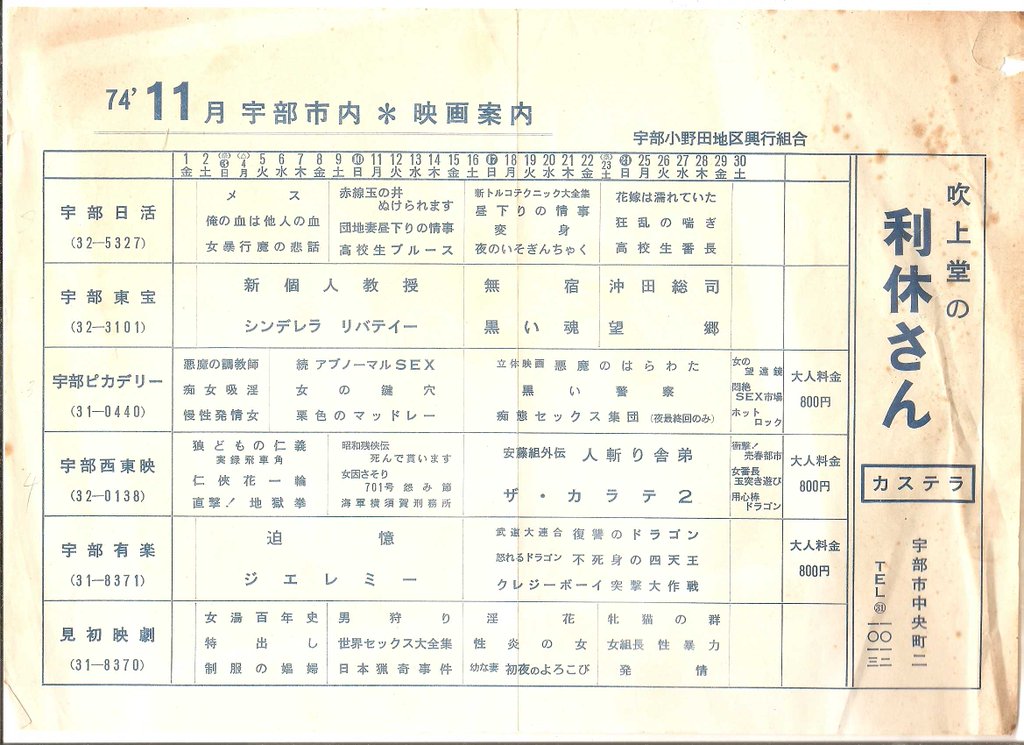 74' 11月 宇部市内 ＊ 映画案内
宇部小野田地区興行組合
1 2 ③ ④ 5 6 7 8 9 ⑩ 11 12 13 14 15 16 ⑰ 18 19 20 21 22 23 ㉔ 25 26 27 28 29 30
金 土 日 月 火 水 木 金 土 日 月 火 水 木 金 土 日 月 火 水 木 金 土 日 月 火 水 木 金 土
宇部日活
(32—5327)
メス
俺の血は他人の血
女暴行魔の悲話
赤線玉の井
ぬけられます
団地妻昼下りの情事
高校生ブルース
新トルコテクニック大全集
昼下りの情事
変身
夜のいそぎんちゃく
花嫁は濡れていた
狂乱の喘ぎ
高校生番長
宇部東宝
(32—3101)
新個人教授
シンデレラ リバテイー
無宿
黒い魂
沖田総司
望郷
宇部ピカデリー
(31—0440)
悪魔の調教師
痴女吸淫
慢性発情女
続 アブノーマルSEX
女の鍵穴
栗色のマッドレー
立体映画 悪魔のはらわた
黒い警察
痴態セックス集団 (夜最終回のみ)
女の
望遠鏡
悶絶
SEX市場
ホット
ロック
大人料金
800円
宇部西東映
(32—0138)
狼どもの仁義
実録飛車角
仁侠花一輪
直撃！地獄拳
昭和残侠伝
死んで貰います
女因さそり
701号怨み節
海軍横須賀刑務所
安藤組外伝 人斬り舎弟
ザ・カラテ2
衝撃！
売春都市
女番長
玉突き遊び
用心棒
ドラゴン
大人料金
800円
宇部有楽
(31—8371)
追憶
ジエレミー
武道大連合 復讐のドラゴン
怒れるドラゴン 不死身の四天王
クレジーボーイ 突撃大作戦
大人料金
800円
見初映劇
(31—8370)
女湯百年史
特出し
制服の娼婦
男狩り
世界セックス大全集
日本猟奇事件
淫花
性炎の女
幼な妻 初夜のよろこび
牝猫の群
女組長性暴力
発情
吹上堂の
利休さん
カステラ
宇部市中央町二
TEL ㉛ 一〇一二
一〇三三